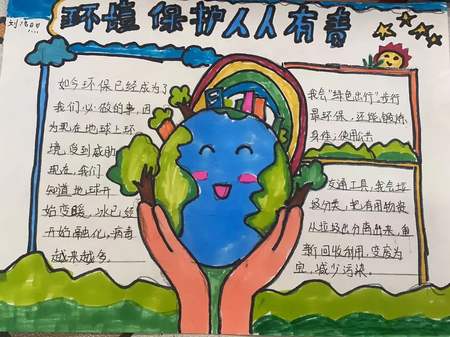 环境保护人人有责
如今环保已经成为了
我们必做的事,因
为现在地球上环
境,受到威胁
现在,我们
知道地球开
始变暖,冰已经
开始融化,病毒
越来越多。
我会“绿色出行”步行
最环保,还能锻炼
身体,使用公共
交通工具,我会垃
圾分类,把有用物资
从垃圾出分离出来,重
新回收利用,变废为
宝,减少污染。